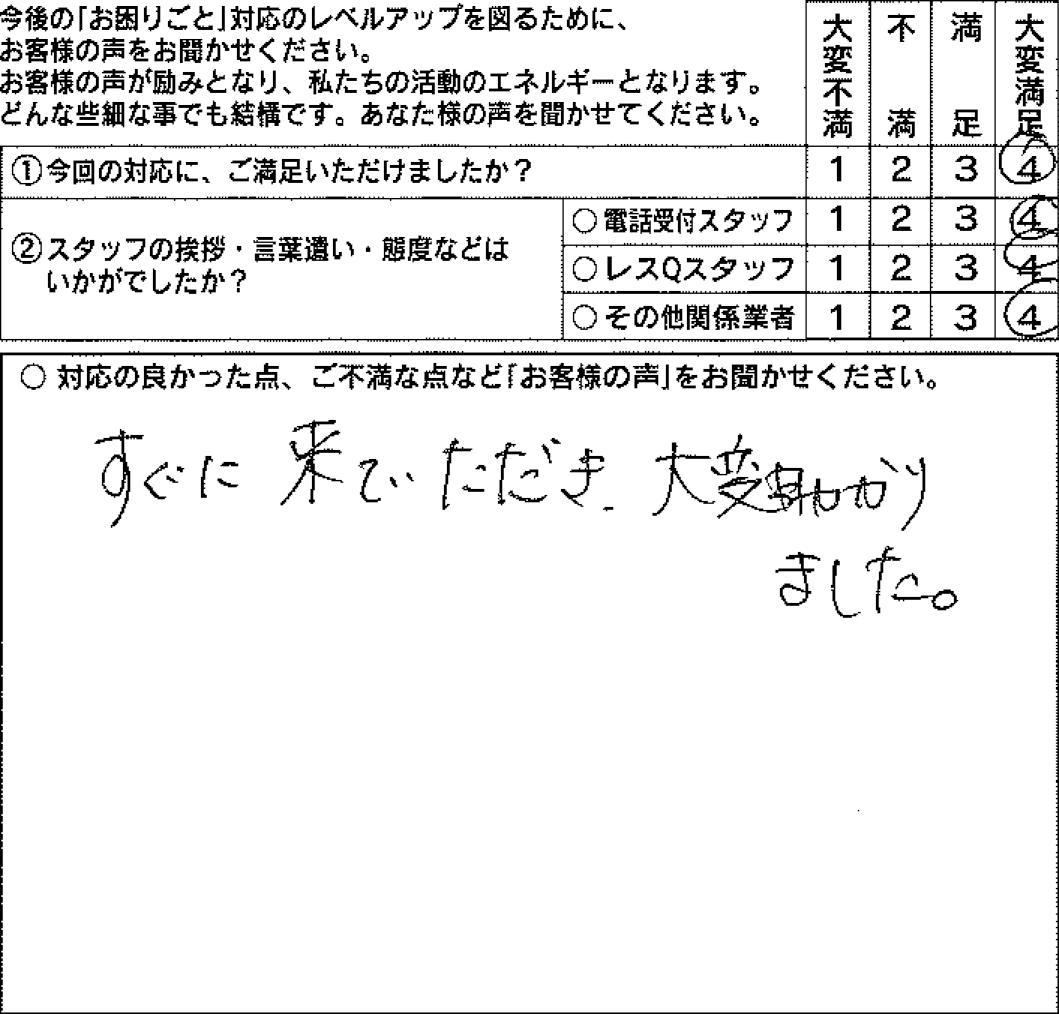 今後の「お困りごと」対応のレベルアップを図るために、
お客様の声をお聞かせください。
お客様の声が励みとなり、私たちの活動のエネルギーとなります。
どんな些細な事でも結構です。あなた様の声を聞かせてください。
大変不満 不満 満足 大変満足
①今回の対応に、ご満足いただけましたか？ 1 2 3 4
②スタッフの挨拶・言葉遣い・態度などは
いかがでしたか？
○電話受付スタッフ 1 2 3 4
○レスQスタッフ 1 2 3 4
○その他関係業者 1 2 3 4
○ 対応の良かった点、ご不満な点など「お客様の声」をお聞かせください。
すぐに来ていただき、大変助かり
ました。